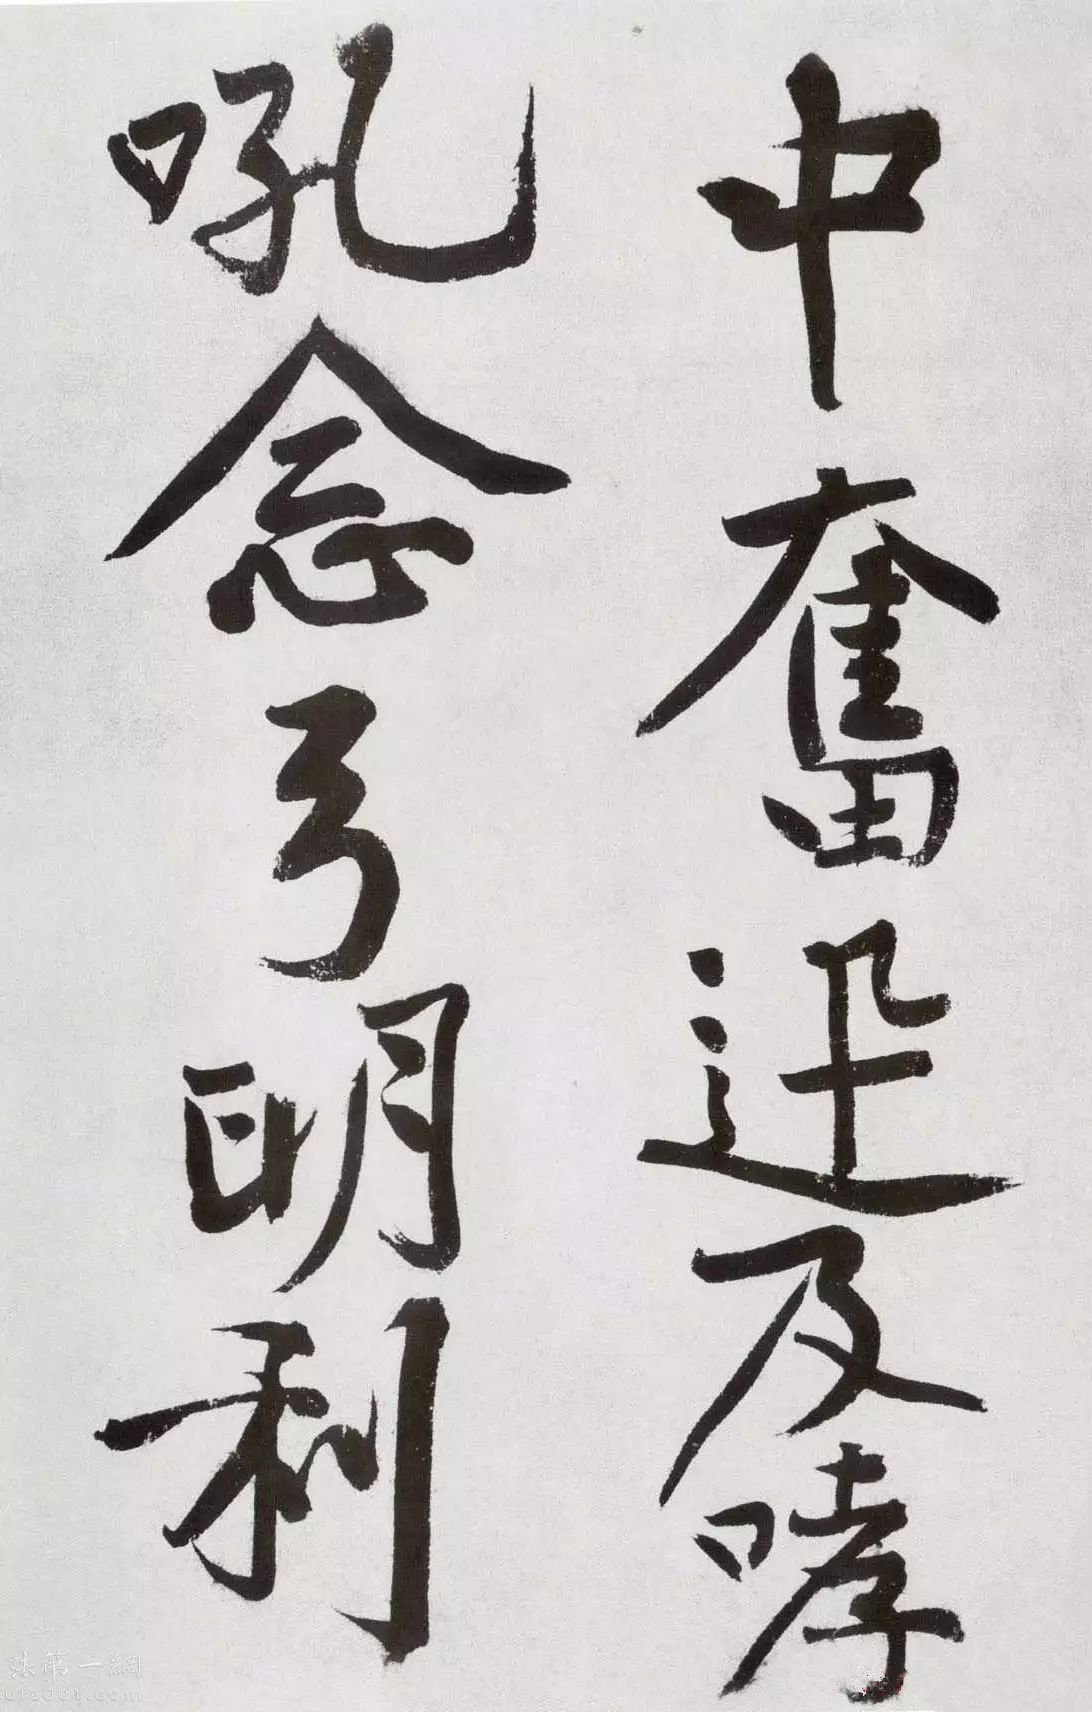 中奮迅及哮
吼念弓明利
法第一網
ufa001.com